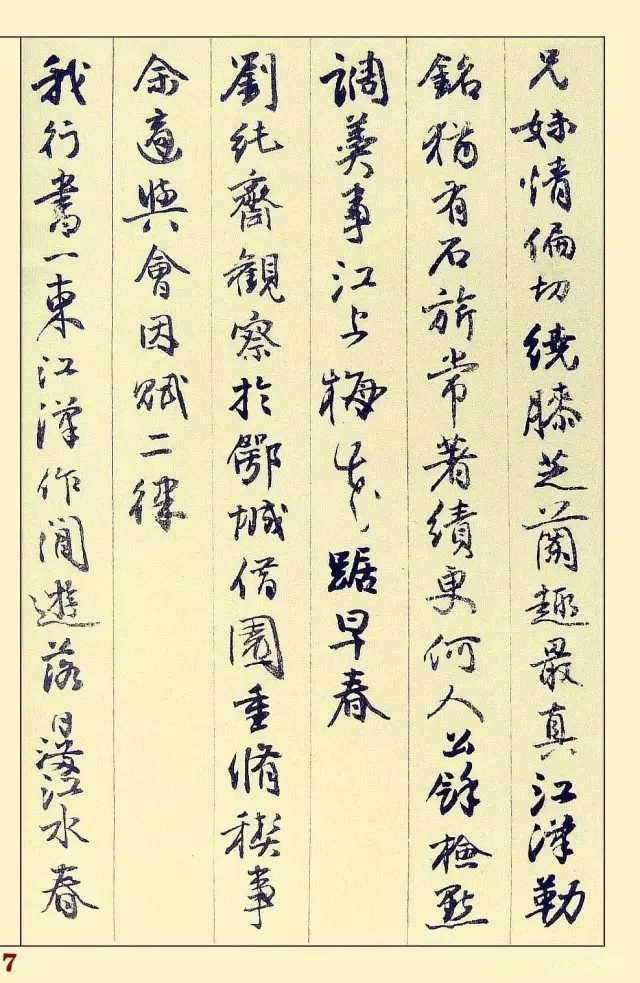 兄妹情偏切繞膝芝蘭趣最真江漢勒
銘猶有石旂常著績更何人公餘檢點
調羹事江上梅花踞早春
劉純齋觀察於鄂城借園重脩稧事
余適與會因賦二律
我行書一束江漢作閒遊落日漫江水春
7